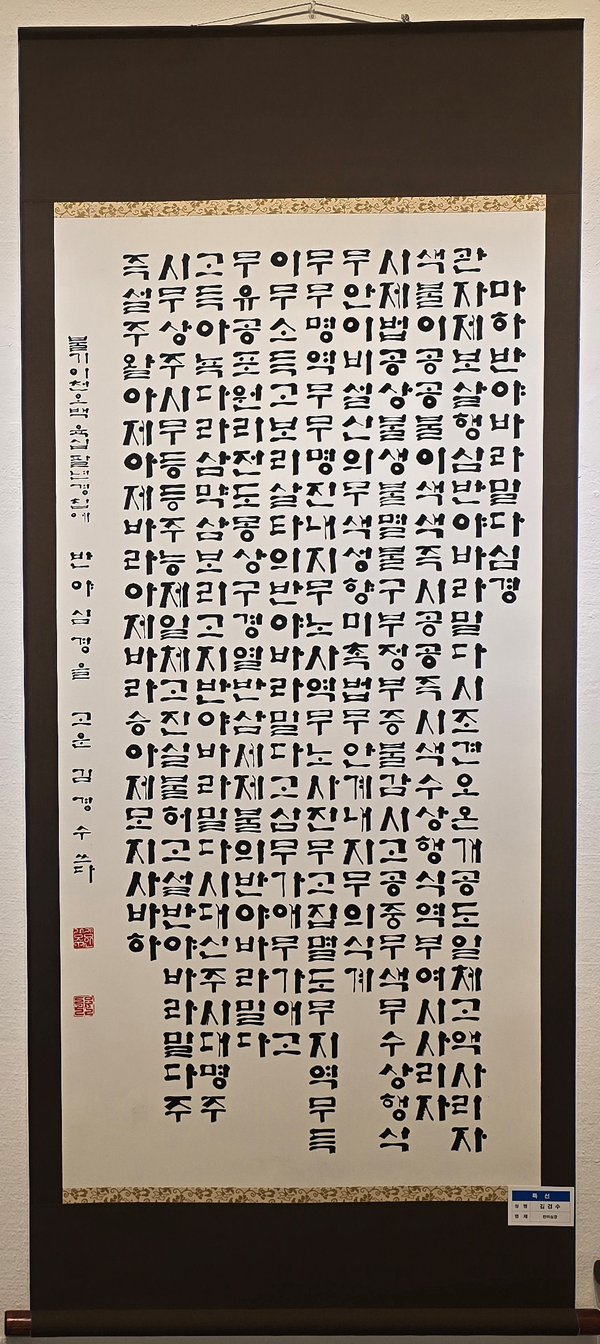 마하반야바라밀다심경
관자제보살행심반야바라밀다시조견오온개공도일체고액사리자
색불이공공불이색색즉시공공즉시색수상행식역부여시사리자
시제법공상불생불멸불구부정부증불감시고공중무색무수상행식
무안이비설신의무색성향미촉법무안계내지무의식계
무무명역무무명진내지무노사역무노사진무고집멸도무지역무득
이무소득고보리살타의반야바라밀다고심무가애무가애고
무유공포원리전도몽상구경열반삼세제불의반야바라밀다
고득아뇩다라삼막삼보리고지반야바라밀다시대신주시대명주
시무상주시무등등주능제일체고진실불허고설반야바라밀다주
즉설주왈아제아제바라아제바라승아제모지사바하
불기이천오백육십팔년경칩에 반야심경을 고운 김경수 쓰다
특 선
성 명 김 경 수
명 제 반야심경